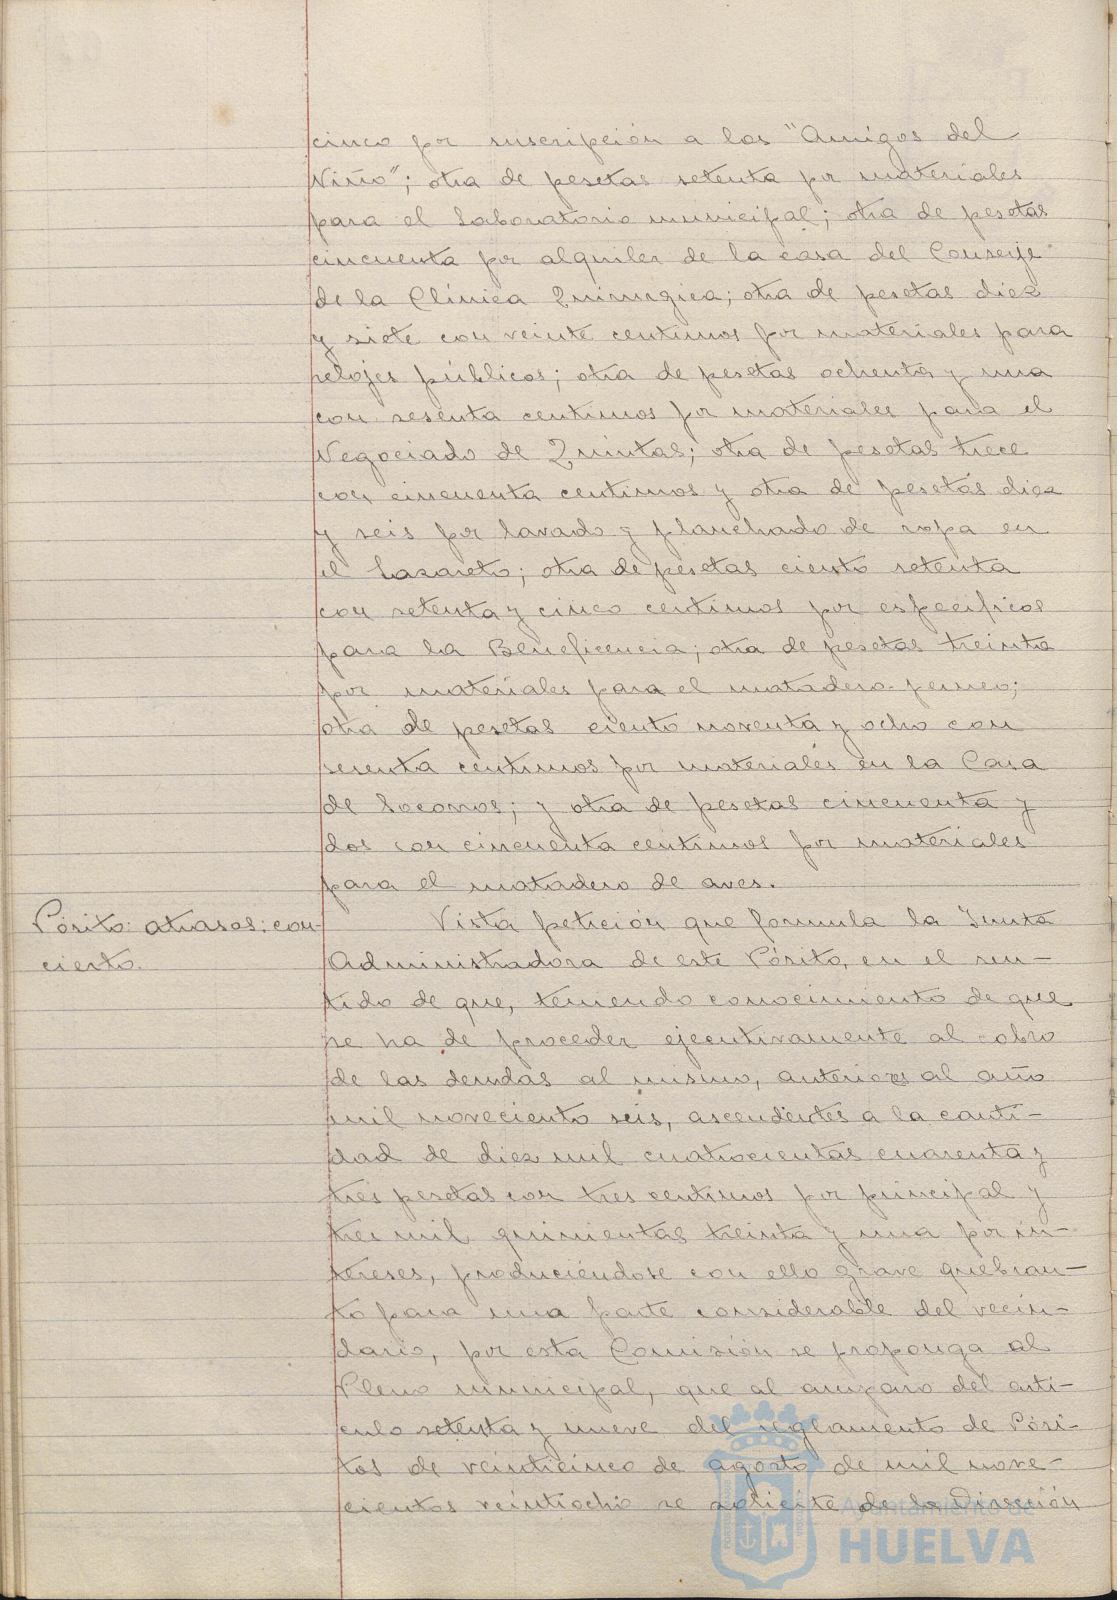 cinco por suscripción a los "Amigos del
Niño"; otra de pesetas setenta por materiales
para el Laboratorio municipal; otra de pesetas
cincuenta por alquiler de la casa del Conserje
de la Clínica Quirurgica; otra de pesetas diez
y siete con veinte centimos por materiales para
relojes públicos; otra de pesetas ochenta y una
con sesenta centimos por materiales para el
Negociado de Quintas; otra de pesetas trece
con cincuenta centimos y otra de pesetas diez
y seis por lavado y planchado de ropa en
el Lazareto; otra de pesetas ciento setenta
con setenta y cinco centimos por especificos
para la Beneficencia; otra de pesetas treinta
por materiales para el matadero
otra de pesetas ciento noventa y ocho con
sesenta centimos por materiales en la Casa
de Socorros; y otra de pesetas cincuenta y
dos con cincuenta centimos por materiales
para el matadero de aves.
Pósito: atrasos: con-
cierto.
Vista petición que formula la Junta
Administradora de este Pósito, en el sen-
tido de que, teniendo conocimiento de que
se ha de proceder ejecutivamente al cobro
de las deudas al mismo, anteriores al año
mil noveciento seis, ascendentes a la canti-
dad de diez mil cuatrocientas cuarenta y
tres pesetas con tres centimos por principal y
tres mil quinientas treinta y una por in-
tereses, produciéndose con ello grave quebran-
to para una parte considerable del vecin-
dario, por esta Comisión se proponga al
Pleno municipal, que al amparo del arti-
culo setenta y nueve del reglamento de Pósi-
tos de veinticinco de agosto de mil nove-
cientos veintiocho se solicite de la Dirección
Ayuntamiento de
HUELVA